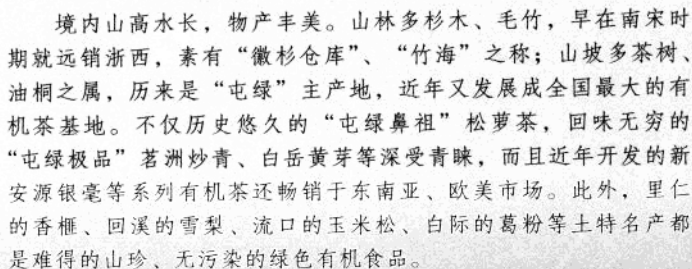 境内山高水长，物产丰美。山林多杉木、毛竹，早在南宋时
期就远销浙西，素有“徽杉仓库”、“竹海”之称；山坡多茶树、
油桐之属，历来是“屯绿”主产地，近年又发展成全国最大的有
机茶基地。不仅历史悠久的“屯绿鼻祖”松萝茶，回味无穷的
“屯绿极品”茗洲炒青、白岳黄芽等深受青睐，而且近年开发的新
安源银毫等系列有机茶还畅销于东南亚、欧美市场。此外，里仁
的香榧、回溪的雪梨、流口的玉米松、白际的葛粉等土特名产都
是难得的山珍、无污染的绿色有机食品。